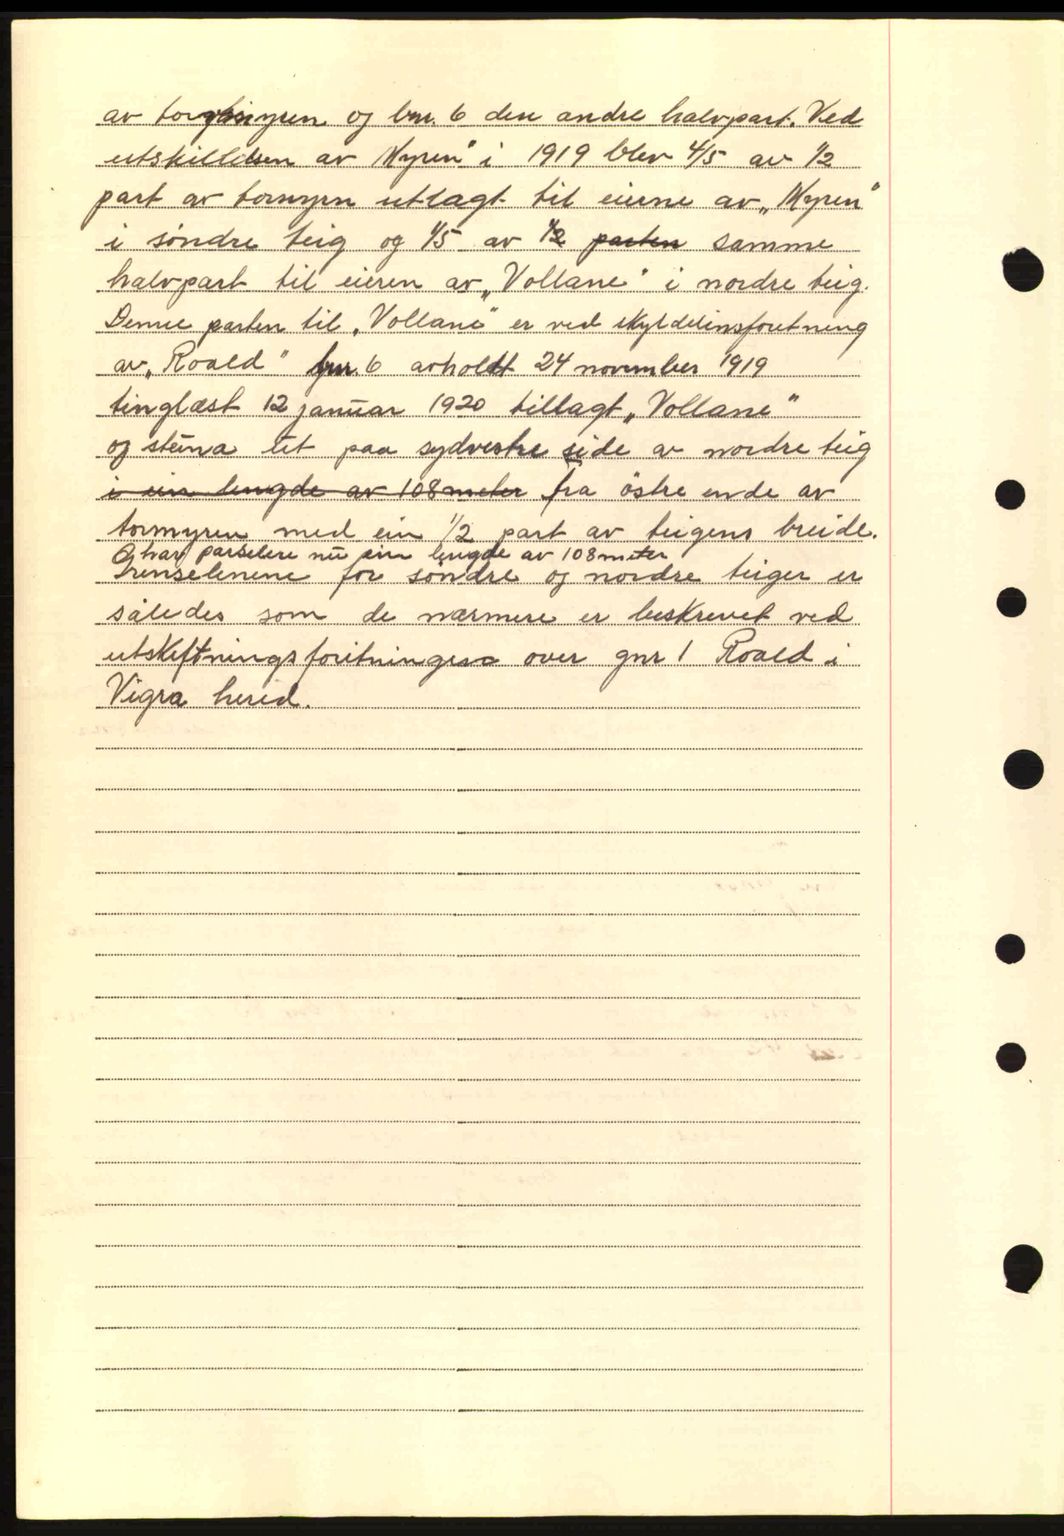 av torvmyren og bnr. 6 den andre halvpart. Ved
utskillelsen av Myren" i 1919 blev 4/5 av 1/2
part av tormyrn utlagt til eierne av „Myren"
i søndre teig og 1/5 av 1/2 parten samme
halvpart til eieren av „Vollane" i nordre teig.
Denne parten til „Vollane" er ved skylddelinsforetning
av „Roald" bnr. 6 avholdt 24 november 1919
tinglæst 12 januar 1920 tillagt „Vollane"
og steina ut paa sydvestre side av nordre teig
i ein lengde av 108 meter fra østre ende av
tormyren med ein 1/2 part av teigens breide.
Og hav parselene nu ein lengde av 108 meter
Grenselinene for søndre og nordre teiger er
således som de nærmere er beskrevet ved
utskiftningsforetningen over gnr 1 Roald i
Vigra herid.